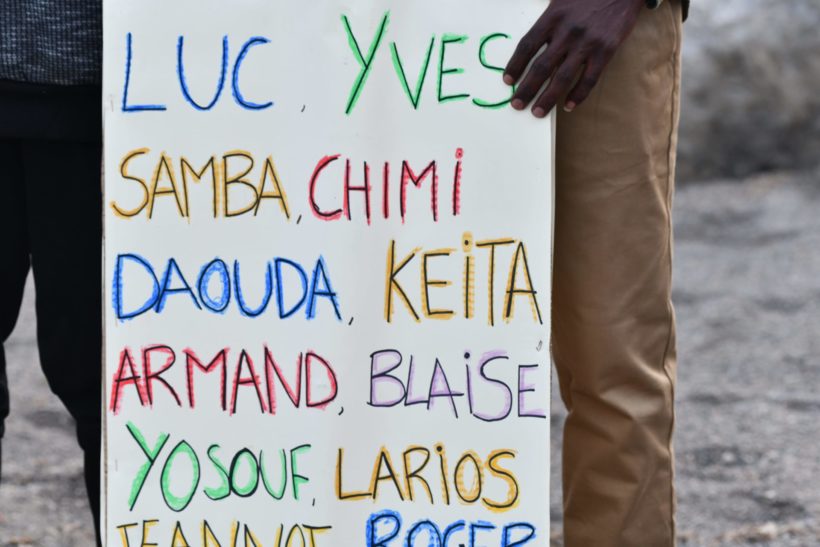 LUC, YVES
SAMBA, CHIMI
DAOUDA, KEITA
ARMAND, BLAISE
YOSOUF, LARIOS
JEANNOT ROGER